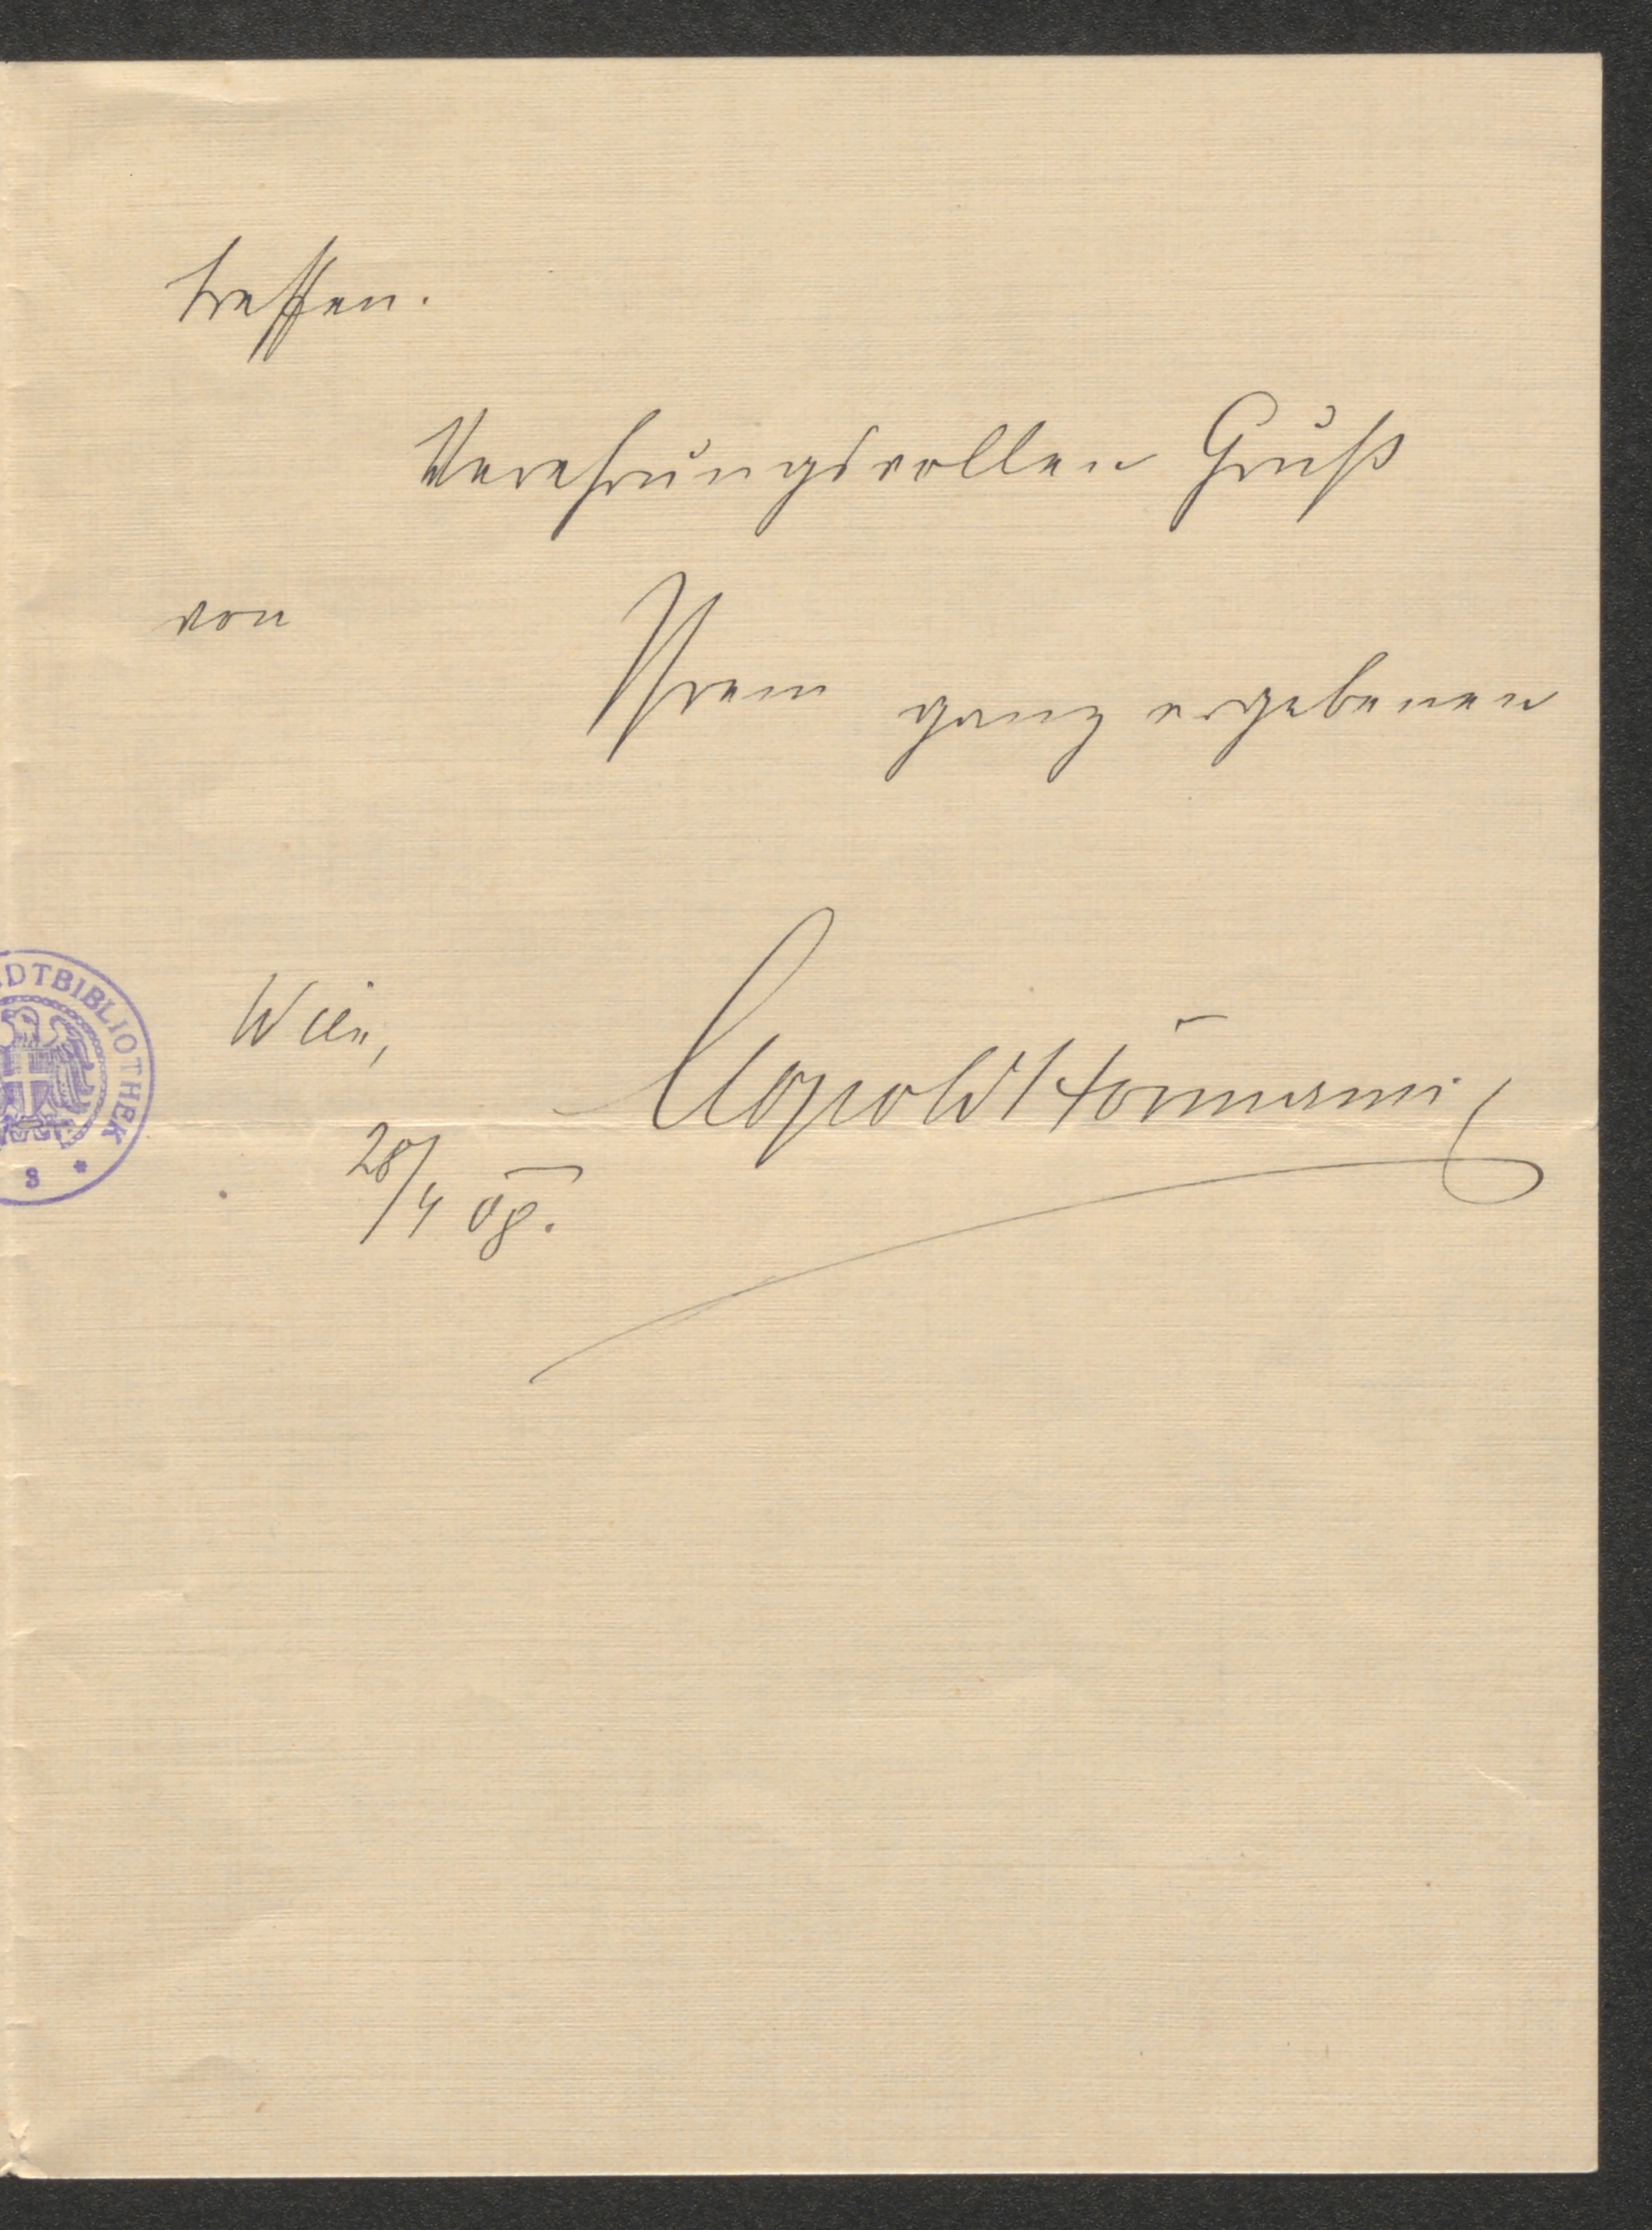 treffen.
Verehrungsvollen Gruß
von
Ihrem ganz ergebenen
Wien,
Leopold Hörmann
28/4 08.
DTBIBLIOTHEK